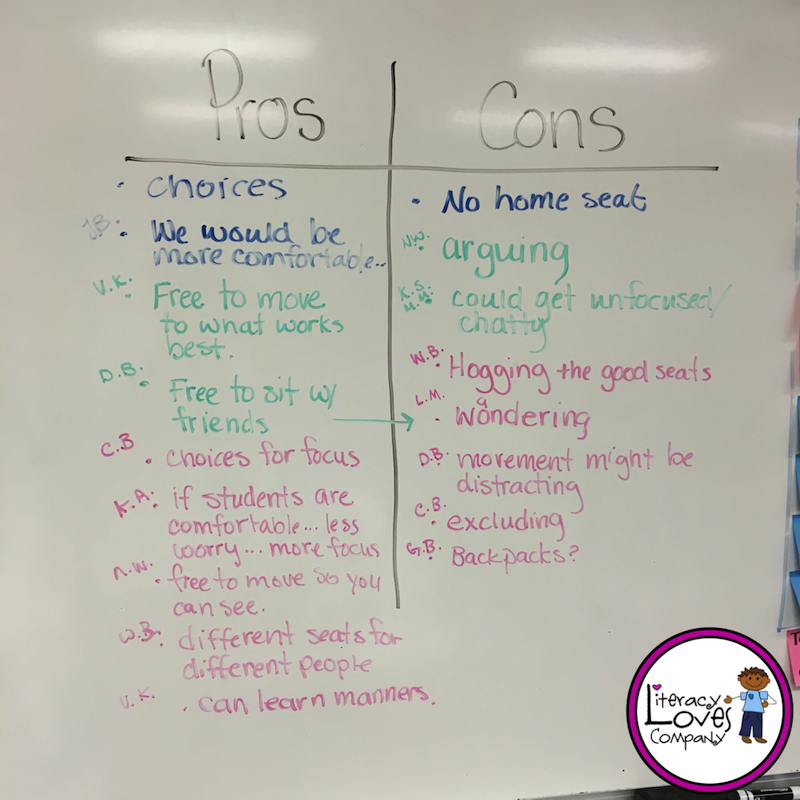 Pros
• choices
JB: • We would be
more comfortable...
V.K. • Free to move
to what works
best.
D.B. • Free to sit w/
friends
C.B • choices for focus
K.A: if students are
comfortable... less
worry... more focus
n.w. • free to move so you
can see.
W.B: different seats for
different people
V.K. • can learn manners.
Cons
• No home seat
NW. • arguing
K.S. M.M. could get unfocused/
chatty
W.B. • Hogging the good seats
L.M. • wondering
a
D.B. • movement might be
distracting
C.B. • excluding
G.B. • Backpacks?
Literacy
Loves
Company